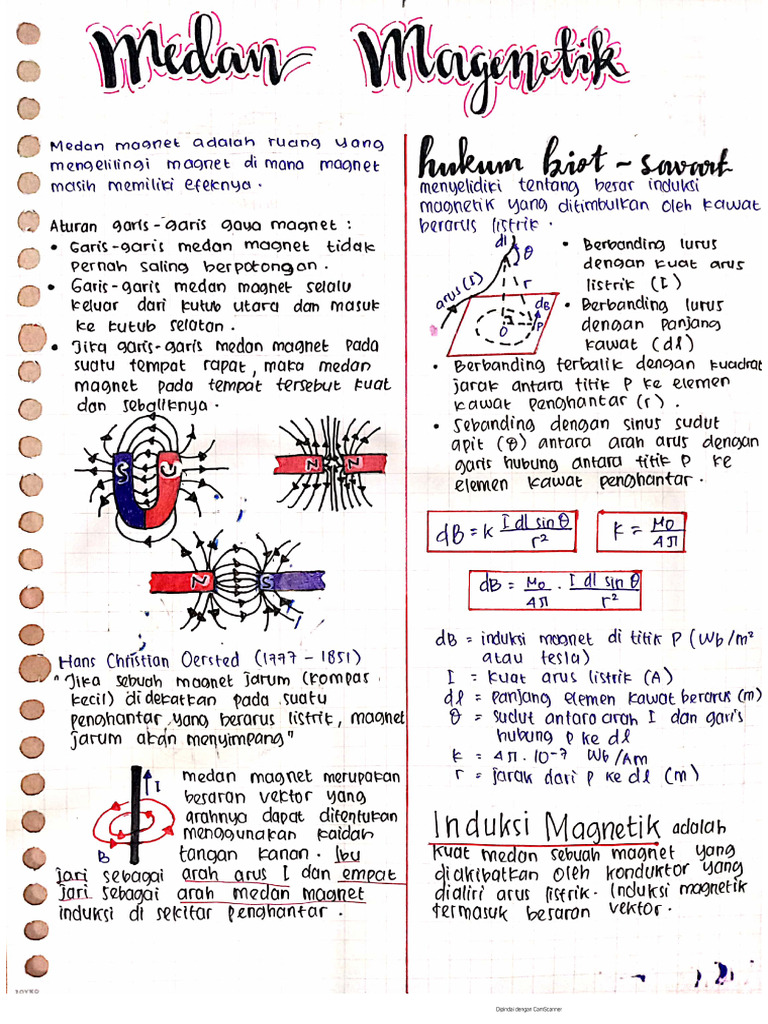 Medan Magenetik
Medan magnet adalah ruang yang
mengelilingi magnet di mana magnet
masih memiliki efeknya.
Aturan garis-garis gaya magnet :
• Garis-garis medan magnet tidak
pernah saling berpotongan.
• Garis-garis medan magnet selalu
keluar dari kutub utara dan masuk
ke kutub selatan.
• Jika garis-garis medan magnet pada
suatu tempat rapat, maka medan
magnet pada tempat tersebut kuat
dan sebaliknya.
S U
N N
N S
Hans Christian Oersted (1777 - 1851)
"Jika sebuah magnet jarum (kompas
kecil) didekatkan pada suatu
penghantar yang berarus listrik, magnet
jarum akan menyimpang"
I
B
medan magnet merupakan
besaran vektor yang
arahnya dapat ditentukan
menggunakan kaidah
tangan kanan. Ibu
jari sebagai arah arus I dan empat
jari sebagai arah medan magnet
induksi di sekitar penghantar.
hukum biot - savart
menyelidiki tentang besar induksi
magnetik yang ditimbulkan oleh kawat
berarus listrik.
dl
θ
arus (I)
r
dB
O
P
• Berbanding lurus
dengan kuat arus
listrik (I)
• Berbanding lurus
dengan panjang
kawat (dl)
• Berbanding terbalik dengan kuadrat
jarak antara titik P ke elemen
kawat penghantar (r).
• Sebanding dengan sinus sudut
apit (θ) antara arah arus dengan
garis hubung antara titik P ke
elemen kawat penghantar.
dB = k I dl sin θ / r²
k = μ0 / 4π
dB = μ0 / 4π . I dl sin θ / r²
dB = induksi magnet di titik P (Wb/m²
atau tesla)
I = kuat arus listrik (A)
dl = panjang elemen kawat berarus (m)
θ = sudut antara arah I dan garis
hubung P ke dl
k = 4π . 10-7 Wb/Am
r = jarak dari P ke dl (m)
Induksi Magnetik adalah
kuat medan sebuah magnet yang
diakibatkan oleh konduktor yang
dialiri arus listrik. Induksi magnetik
termasuk besaran vektor.
Dipindai dengan CamScanner